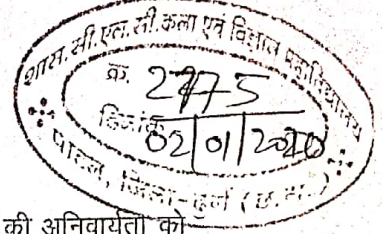 शास. सी.एल.सी. कला एवं विज्ञान महाविद्यालय
क्र. 2975
दिनांक 02/01/2020
पाटन, जिला-दुर्ग (छ.ग.)
की अनिवार्यता को